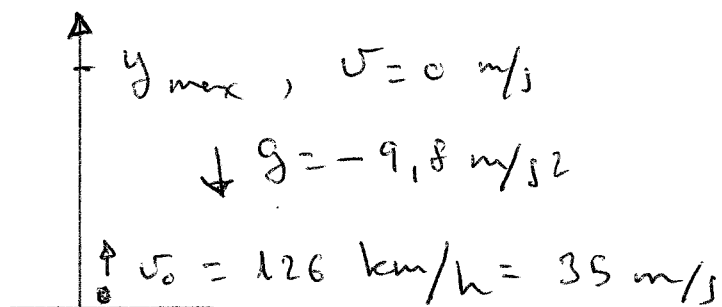 y max, v = 0 m/s
↓ g = -9,8 m/s2
↑ v0 = 126 km/h = 35 m/s